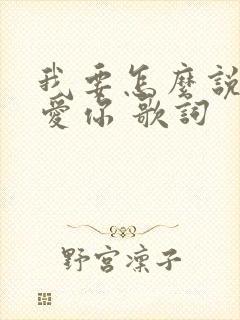 我要怎麼說
愛你 歌詞
野宮凜子